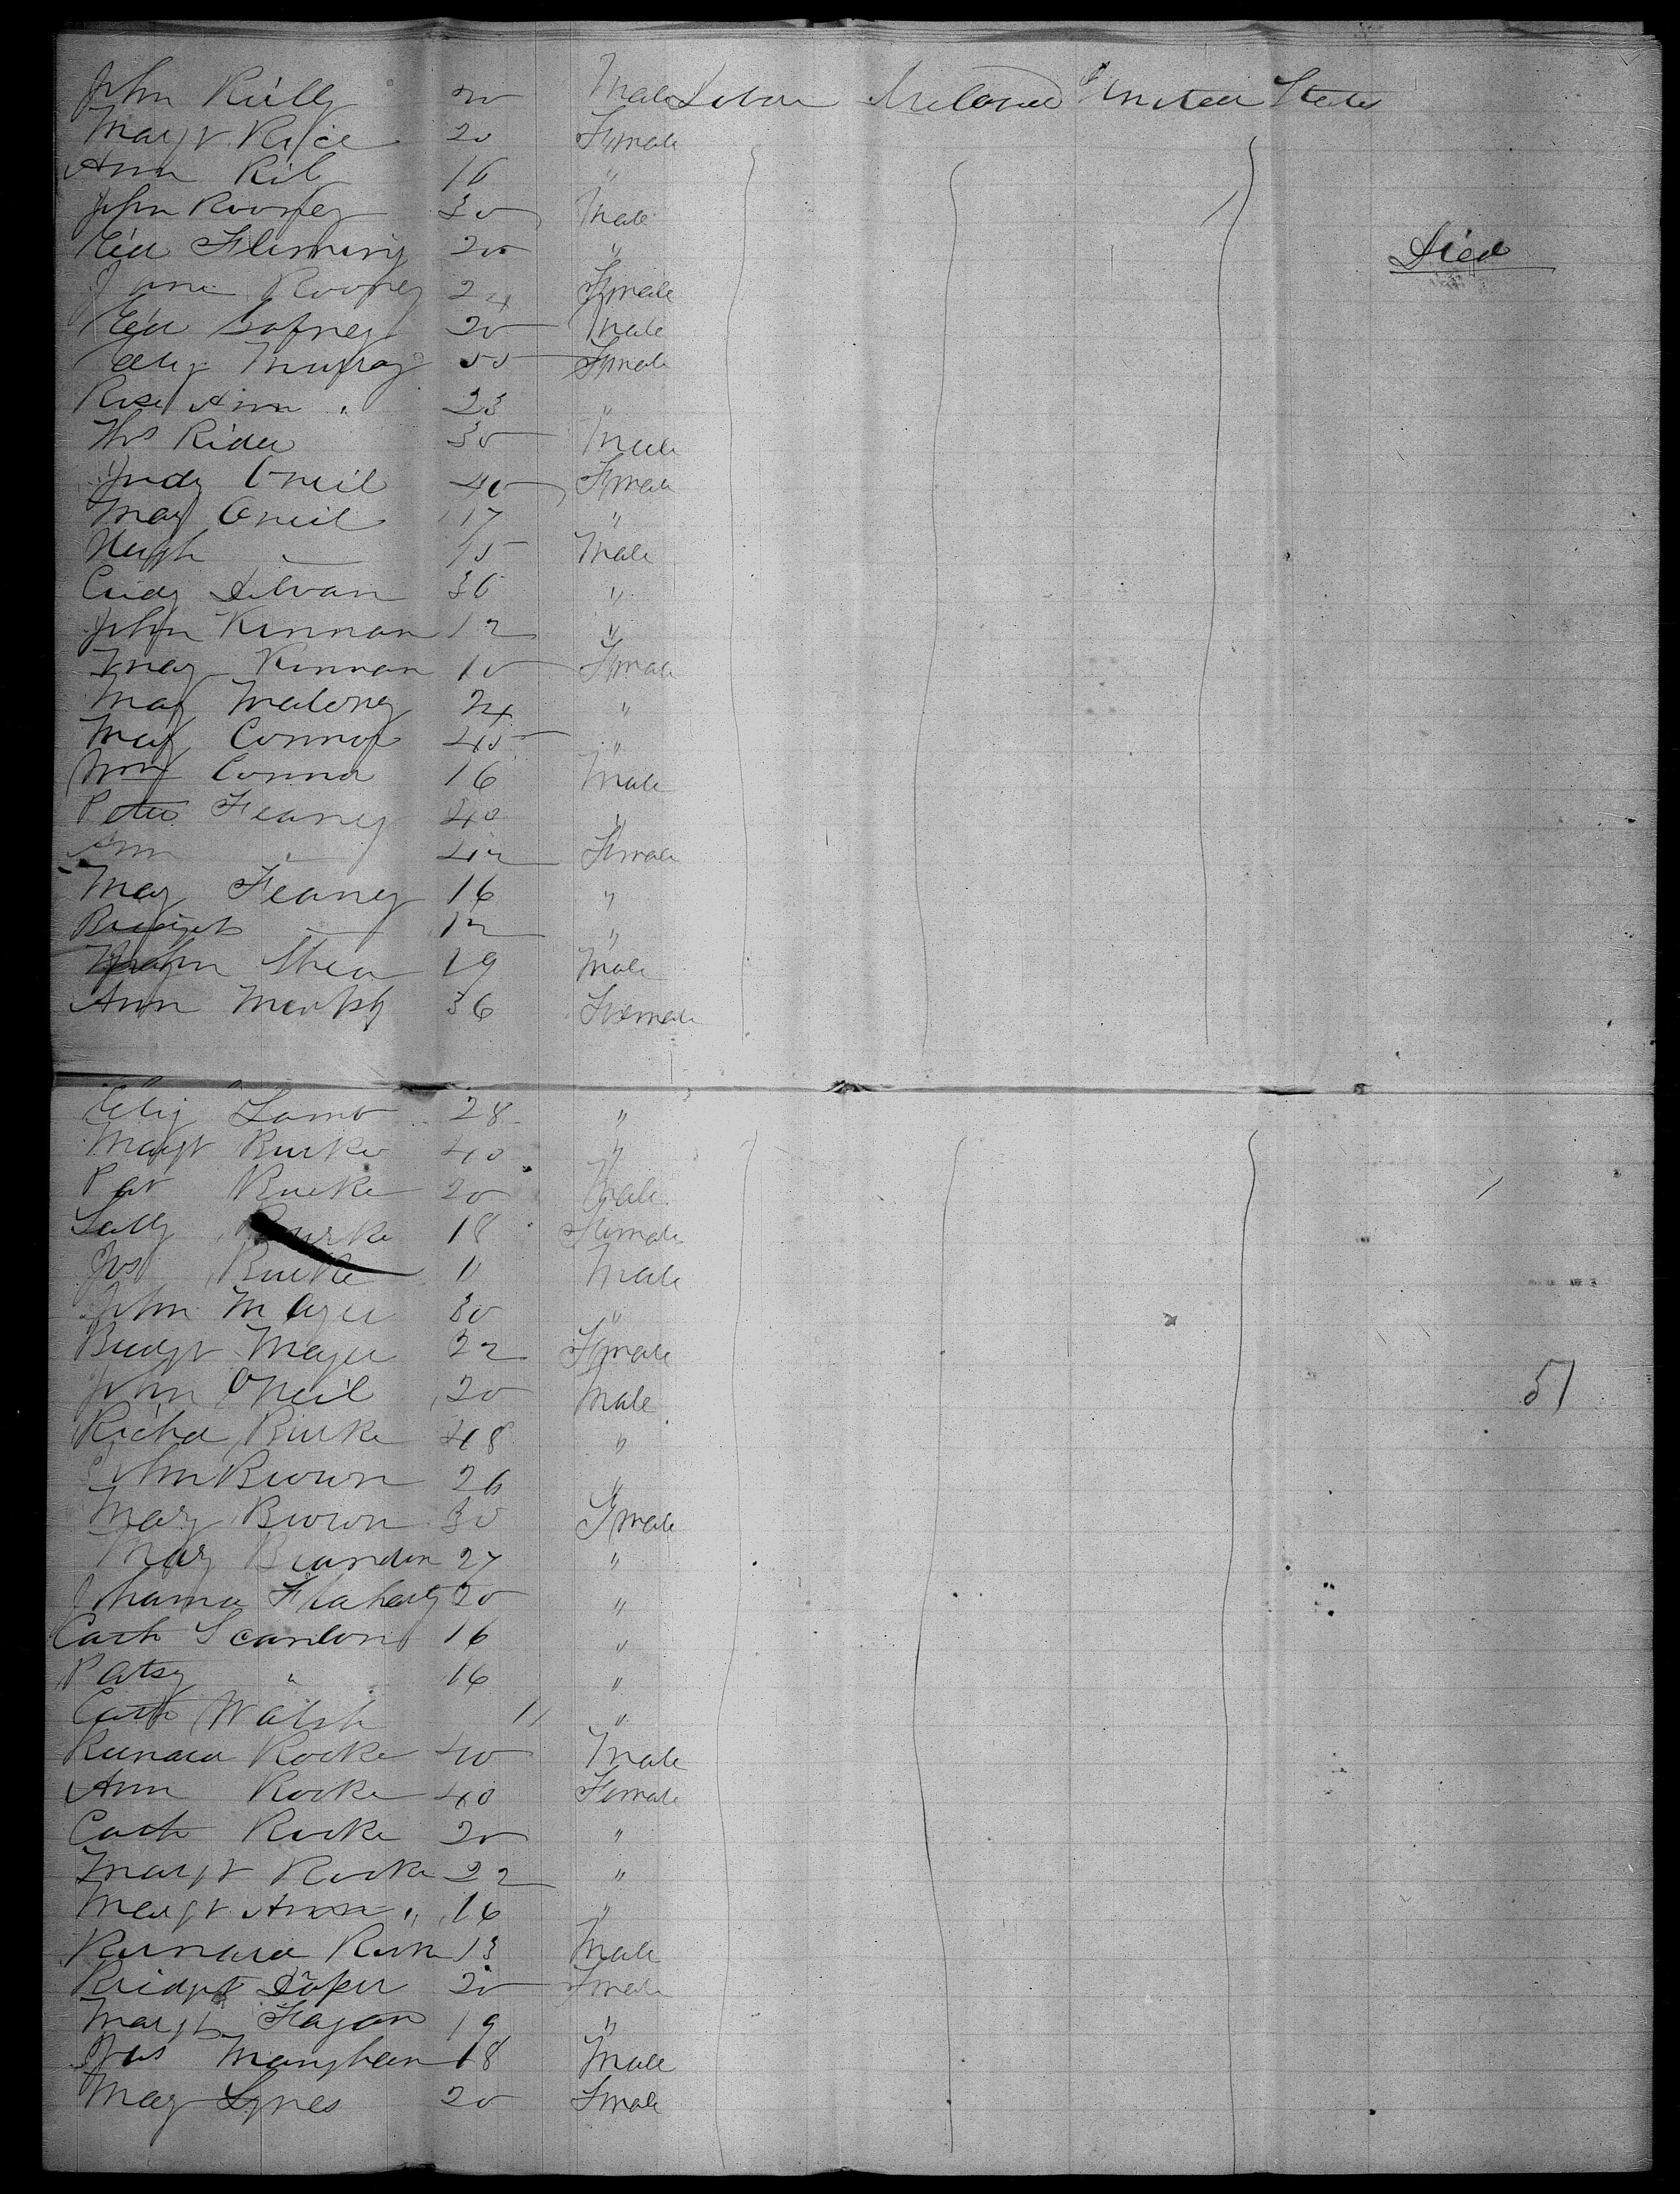 John Reilly 20 Male Labor Ireland United States
Margt Rice 20 Female
Ann 16 "
John Rooney 30 Male
Ed Fleming 20 " Died
Jane Rooney 24 Female
Ed Gafney 20 Male
Eliz Murray 55 Female
Rose Ann " 23 "
Ths Rider 30 Male
Judy Oneil 40 Female
Mary Oneil 17 "
Hugh " 15 Male
36 "
John Kinnan 12 "
Mary Kinnan 10 Female
Mary Maloney 24 "
Mary Connor 45 "
Wm Connor 16 Male
Peter Feaney 40 "
Ann " 42 Female
Mary Feaney 16 "
Bridget " 12 "
John Shea 19 Male
Ann Murphy 36 Female
Eliz Lamb 28 "
Margt Burke 40 "
Pat Burke 20 Male
Sally Burke 18 Female
Jos Burke 11 Male
John Mayer 30 "
Bridgt Mayer 22 Female
John ONeil 20 Male 51
Richd Burke 48 "
John Brown 26 "
Mary Brown 30 Female
Mary Brandon 27 "
Johanna Flaherty 20 "
Cath Scanlon 16 "
Patsy " 16 "
Cath Walsh 11 "
Bernard Rooke 40 Male
Ann Rooke 40 Female
Cath Rooke 20 "
Margt Rooke 22 "
Margt Ann " 16 "
Bernard 13 Male
Bridget 20 Female
Margt Fagan 19 "
Manghan 18 Male
Mary Lynes 20 Female